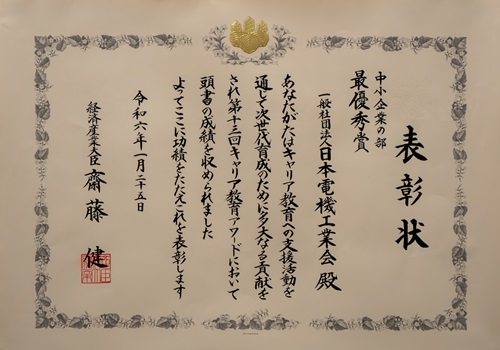 表彰状
中小企業の部
最優秀賞
一般社団法人日本電機工業会 殿
あなたがたはキャリア教育への支援活動を
通じて次世代育成のために多大なる貢献を
され第十三回キャリア教育アワードにおいて
頭書の成績を収められました
よってここに功績をたたえこれを表彰します
令和六年一月二十五日
経済産業大臣 齋藤 健